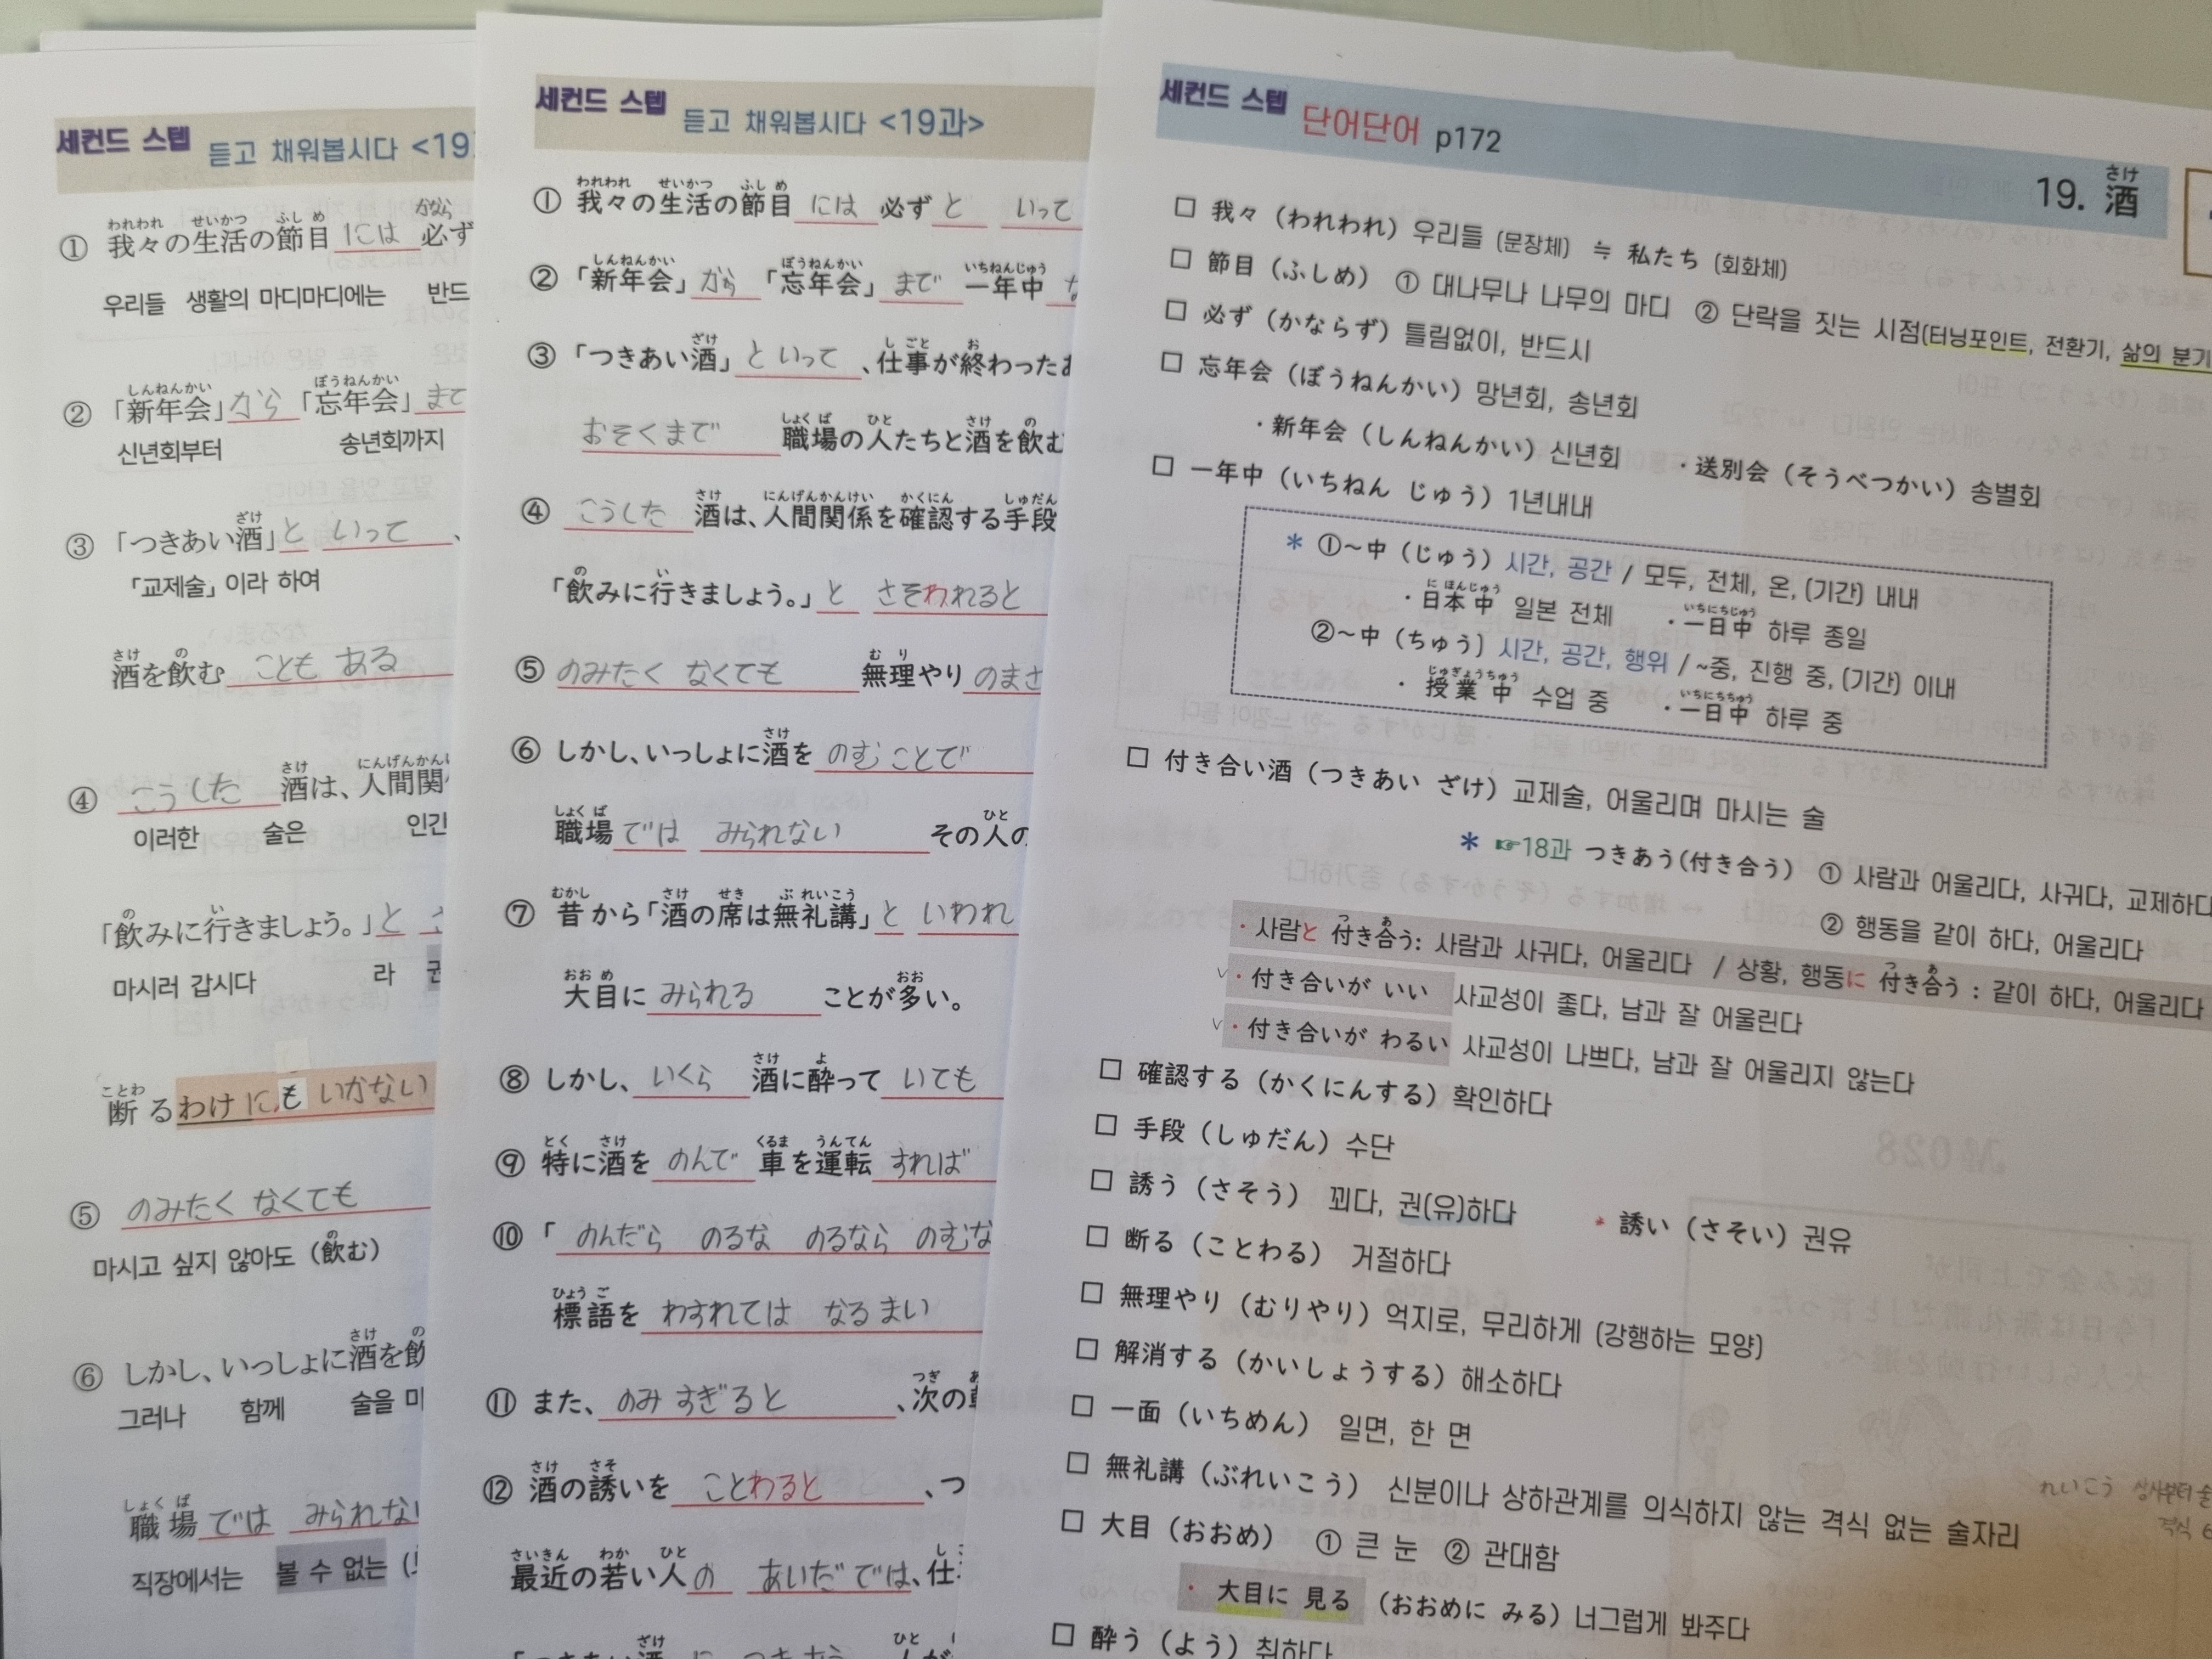 세컨드 스텝 듣고 채워봅시다 <19
① 我々の生活の節目には 必ず
われわれ せいかつ ふしめ かなら
우리들 생활의 마디마디에는 반드
② 「新年会」から「忘年会」まで
しんねんかい ぼうねんかい
신년회부터 송년회까지
③ 「つきあい酒」と いって、
ざけ
「교제술」이라 하여
酒を飲む ことも ある
さけ の
④ こうした 酒は、人間関
さけ にんげんかん
이러한 술은 인간
「飲みに行きましょう。」と
の い
마시러 갑시다 라 권
断るわけにも いかない
ことわ
⑤ のみたく なくても
마시고 싶지 않아도 (飲む)
の
⑥ しかし、いっしょに酒を飲
さけ の
그러나 함께 술을 마
職場では みられない
しょくば
직장에서는 볼 수 없는
세컨드 스텝 듣고 채워봅시다 <19과>
① 我々の生活の節目には 必ず と いって
われわれ せいかつ ふしめ
② 「新年会」から「忘年会」まで 一年中
しんねんかい ぼうねんかい いちねんじゅう
③ 「つきあい酒」といって、仕事が終わったあ
ざけ しごと お
おそくまで 職場の人たちと酒を飲む
しょくば ひと さけ の
④ こうした 酒は、人間関係を確認する手段
さけ にんげんかんけい かくにん しゅだん
「飲みに行きましょう。」と さそわれると
の い
⑤ のみたく なくても 無理やり のまさ
むり
⑥ しかし、いっしょに酒を のむことで
さけ
職場では みられない その人の
しょくば ひと
⑦ 昔から「酒の席は無礼講」と いわれ
むかし さけ せき ぶれいこう
大目に みられる ことが多い。
おおめ おお
⑧ しかし、いくら 酒に酔って いても
さけ よ
⑨ 特に酒を のんで 車を運転 すれば
とく さけ くるま うんてん
⑩ 「 のんだら のるな のるなら のむな
標語を わすれては なるまい
ひょうご
⑪ また、のみすぎると、次の
つぎ
⑫ 酒の誘いを ことわると、つ
さけ さそ
最近の若い人の あいだでは、仕
さいきん わか ひと し
「つきあい酒 に つきあう 人が
ざけ ひと
세컨드 스텝 단어단어 p172
19. 酒
さけ
□ 我々 (われわれ) 우리들 (문장체) ≒ 私たち (회화체)
□ 節目 (ふしめ) ① 대나무나 나무의 마디 ② 단락을 짓는 시점(터닝포인트, 전환기, 삶의 분기
□ 必ず (かならず) 틀림없이, 반드시
□ 忘年会 (ぼうねんかい) 망년회, 송년회
・新年会 (しんねんかい) 신년회 ・送別会 (そうべつかい) 송별회
□ 一年中 (いちねん じゅう) 1년내내
* ①~中 (じゅう) 시간, 공간 / 모두, 전체, 온, (기간) 내내
・日本中 일본 전체 ・一日中 하루 종일
にほんじゅう いちにちじゅう
②~中 (ちゅう) 시간, 공간, 행위 / ~중, 진행 중, (기간) 이내
・授業中 수업 중 ・一日中 하루 중
じゅぎょうちゅう いちにちちゅう
□ 付き合い酒 (つきあい ざけ) 교제술, 어울리며 마시는 술
* ☞18과 つきあう(付き合う) ① 사람과 어울리다, 사귀다, 교제하다
② 행동을 같이 하다, 어울리다
・사람と 付き合う: 사람과 사귀다, 어울리다 / 상황, 행동に 付き合う : 같이 하다, 어울리다
つ あ つ あ
・付き合いが いい 사교성이 좋다, 남과 잘 어울린다
・付き合いが わるい 사교성이 나쁘다, 남과 잘 어울리지 않는다
□ 確認する (かくにんする) 확인하다
□ 手段 (しゅだん) 수단
□ 誘う (さそう) 꾀다, 권(유)하다 * 誘い (さそい) 권유
□ 断る (ことわる) 거절하다
□ 無理やり (むりやり) 억지로, 무리하게 (강행하는 모양)
□ 解消する (かいしょうする) 해소하다
□ 一面 (いちめん) 일면, 한 면
□ 無礼講 (ぶれいこう) 신분이나 상하관계를 의식하지 않는 격식 없는 술자리
れいこう
□ 大目 (おおめ) ① 큰 눈 ② 관대함
・大目に 見る (おおめに みる) 너그럽게 봐주다
□ 酔う (よう) 취하다